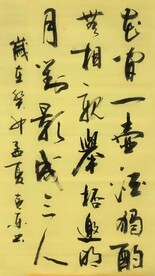 花間一壺酒獨酌
無相親舉杯邀明
月對影成三人
歲在癸卯孟夏